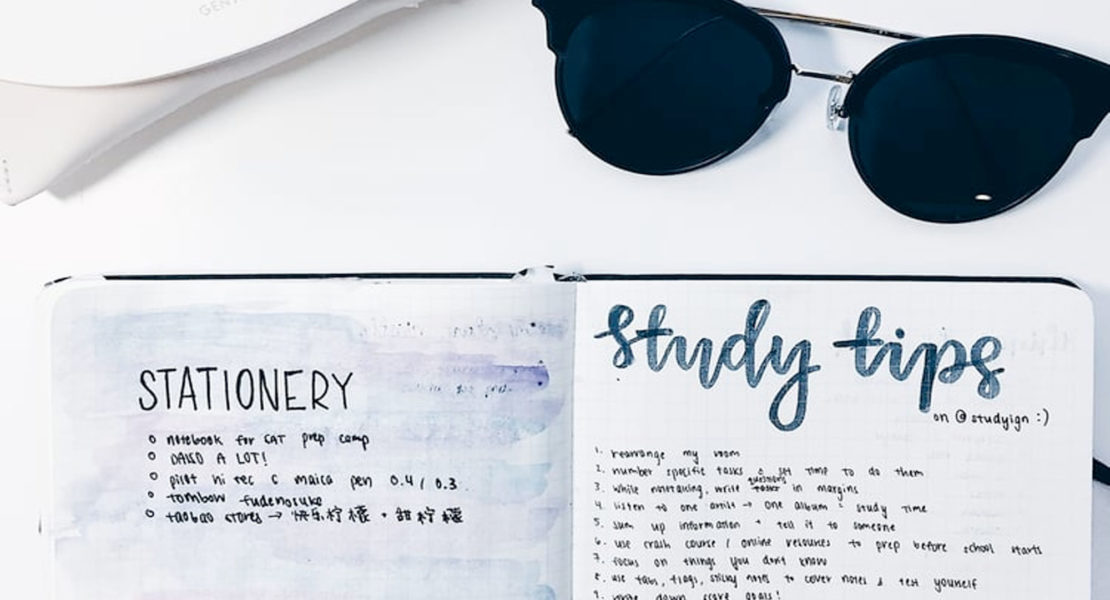 GEN
STATIONERY
o notebook for CAT prep camp
o DAISO A LOT!
o pilot hi tec c maica pen 0.4 / 0.3
o tombow fudenosuke
o taobao stores → 快乐柠檬 + 甜柠檬
study tips
on @studyign :)
1. rearrange my room
2. number specific tasks & set time to do them
questions
3. while notetaking, write tasks in margins
4. listen to one artist → one album = study time
5. sum up information + tell it to someone
6. use crash course / online resources to prep before school starts
7. focus on things you don't know
8. use tabs, flags, sticky notes to cover notes & test yourself
9. write down score goals!